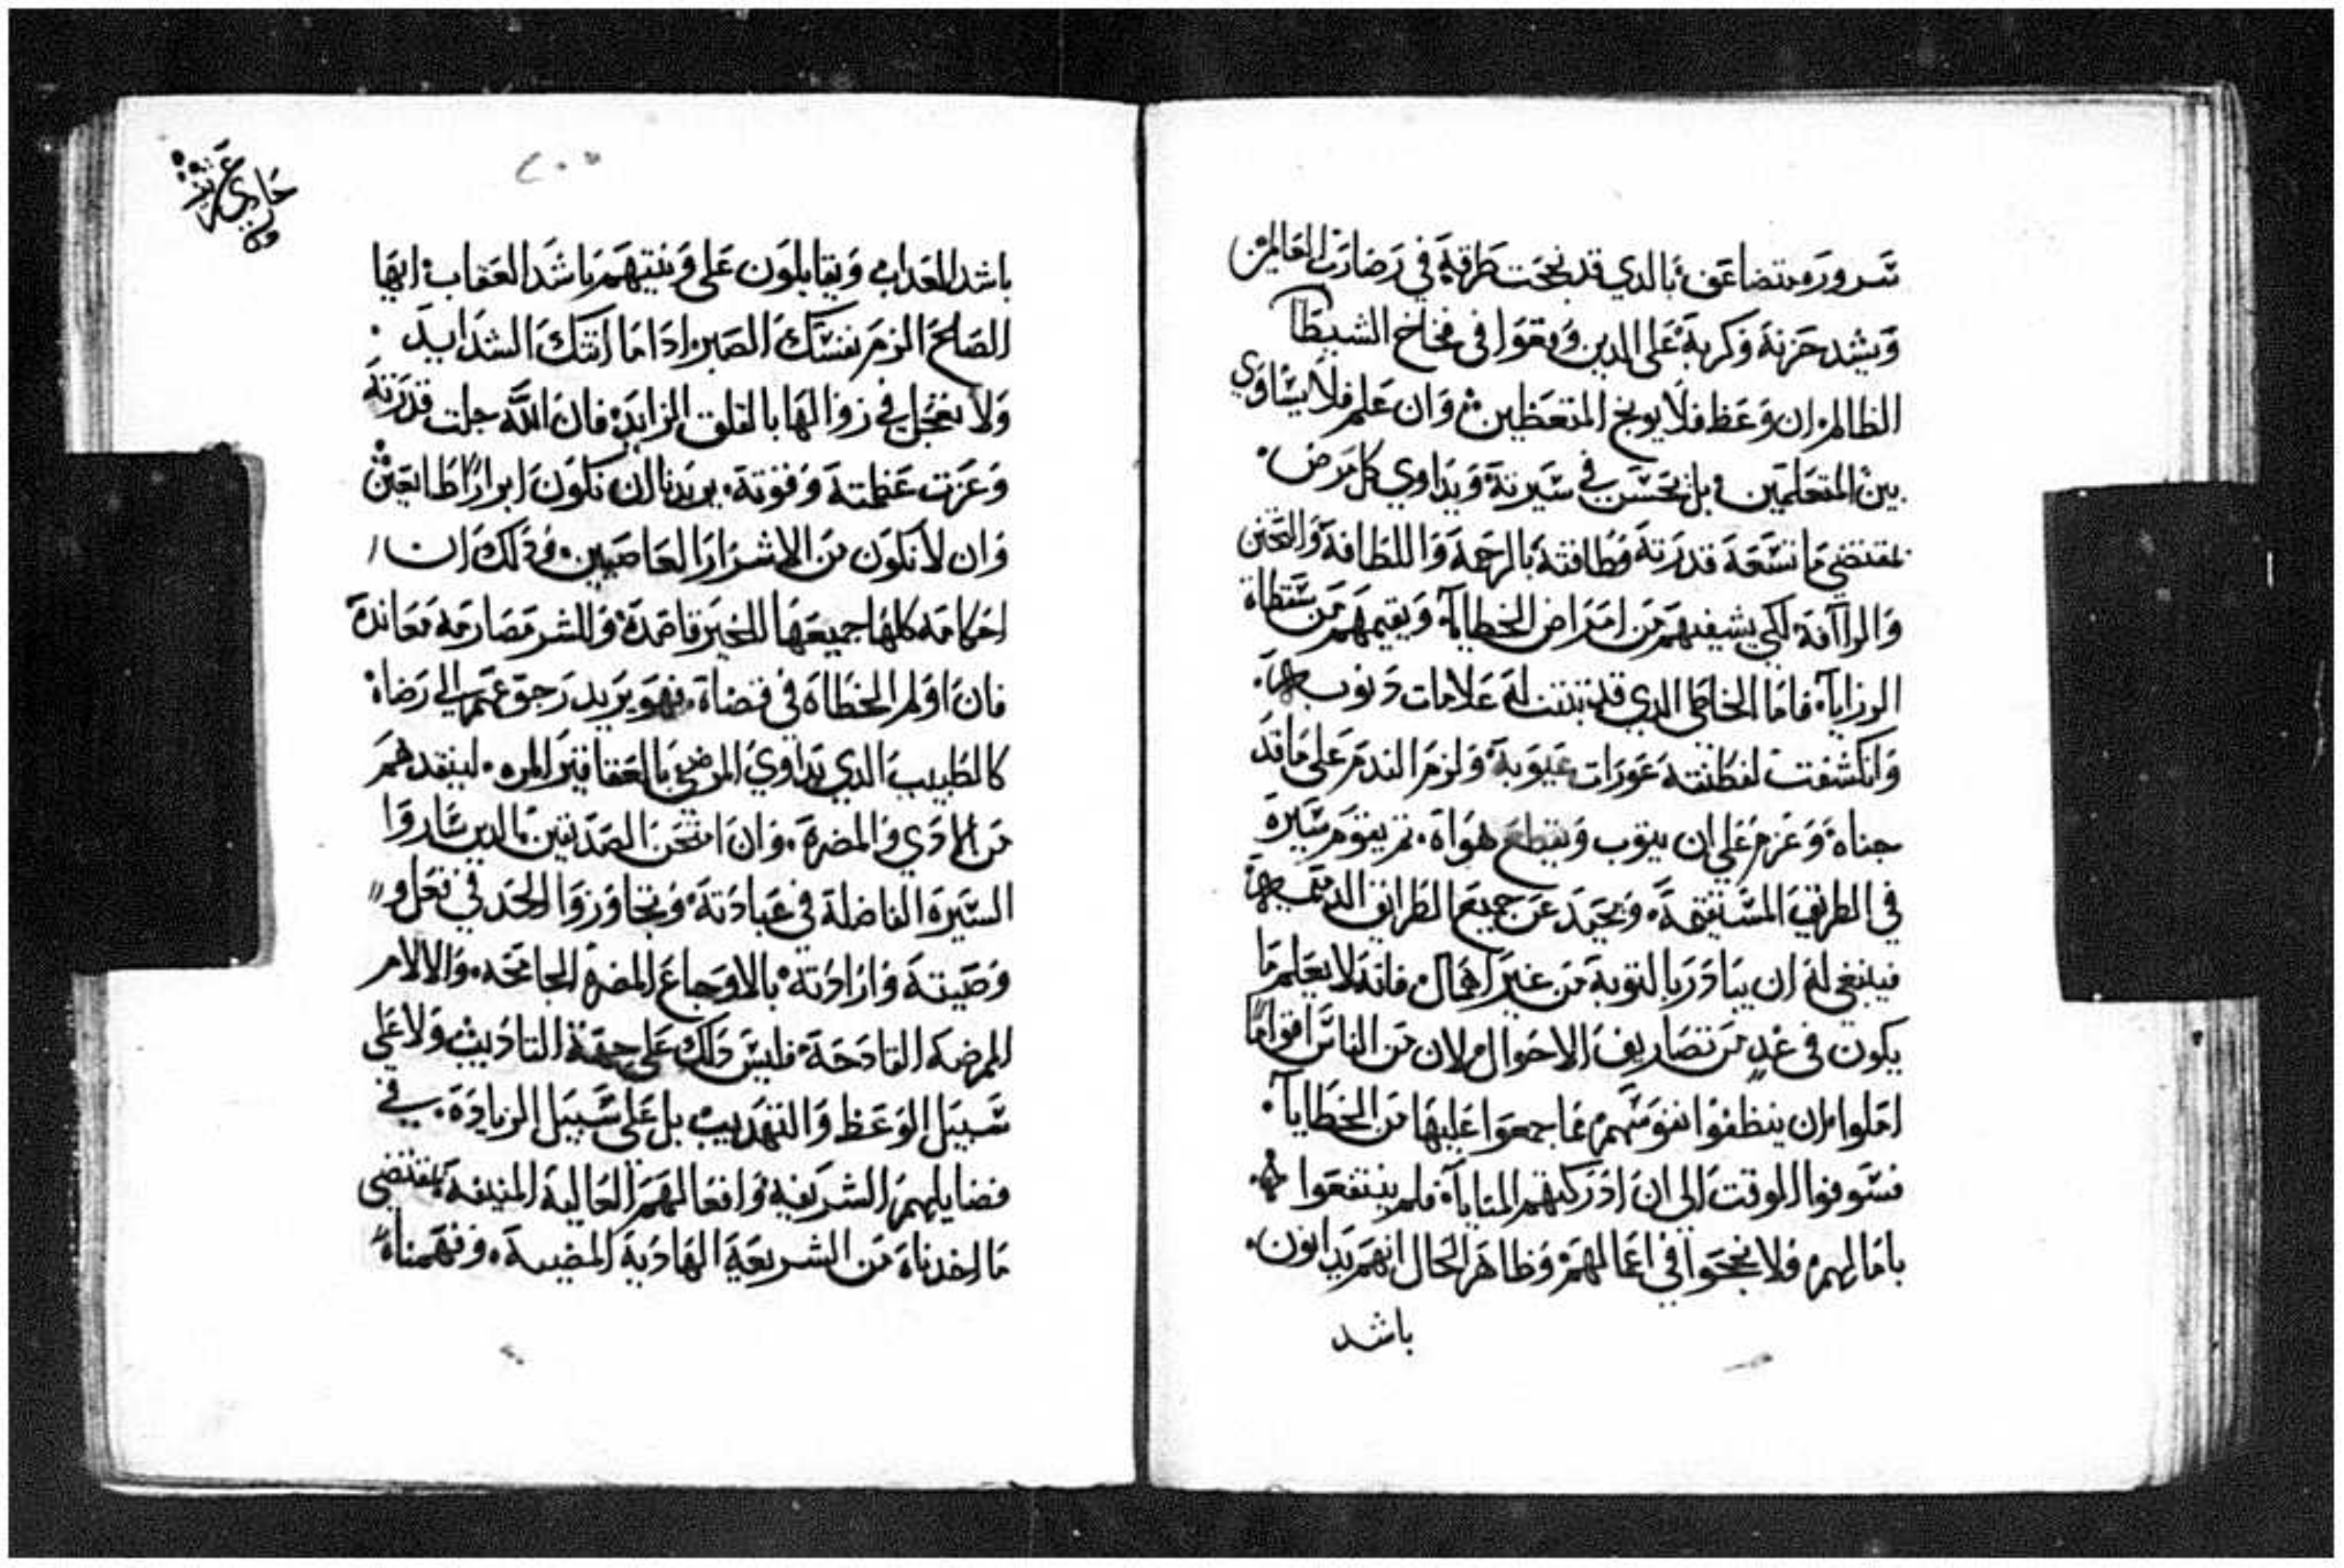 سروره متضاعف بالدي قد نجحت طراقيه في رضارب العالمين
ويشد حزنه وكربه على الدين وقعوا في فخاخ الشيطا
الظالم ان وعظ فلا يوبخ المتعظين وان علم فلا يساوي
بين المتعلمين بل يحسن في سيرته ويداوي كل مرض
بمقتضي ما تسعه قدرته وطاقته بالرحمة واللطافة والتحنن
والراافة لكي يشفيهم من امراض الخطايا ويقيمهم من سقطاة
الرزايا فاما الخاطي الدي قد تبينت له علامات دنوب
وانكشفت لفطنته عورات عيوبه ولزم الندم على ما قد
جناه وعزم على ان يتوب ويقطع هواه تم يقوم سيره
في الطريق المستقيمة ويحيد عن جميع الطرايق الدميمه
فينبغي له ان يبادر بالتوبة من غير اهمال فانه لا يعلم ما
يكون في غد من تصاريف الاحوال لان من الناس اقواما
املوا ان ينظفوا نفوسهم مما جمعوا عليها من الخطايا
فسوفوا الوقت الي ان ادركتهم المنايا فلم ينتفعوا
بامالهم ولا نجحوا في اعمالهم وظاهر الحال انهم يدانون
باشد
٢٠٥
حادي عشر
باشد العداب ويقابلون على ونيتهم باشد العقاب ايها
الصالح الزم نفسك الصبر ادا ما اتتك الشدايد
ولا تعجل في زوالها بالقلق الزايد فان الله جلت قدرته
وعزت عظمته وقوته يريدنا ان نكون ابرارا طايعين
وان لا نكون من الاشرار العاصيين ودلك ان
احكامه كلها جميعها للخير قاصدة وللشر مصارمه معاندة
فان اولم الخطاة في قضاة فهو يريد رجوعهم الي رضاه
كالطبيب الدي يداوي المرضي بالعقاقير المره لينقدهم
من الادي والمضرة وان امتحن الصديقين الدين ساروا
السيرة الفاضلة في عبادته وتجاوزوا الحد في فعل
وصيته وارادته بالاوجاع المضه الجامحه والالام
المرضه القادحة فليس دلك على جهة التاديب ولا علي
سبيل الوعظ والتهديب بل على سبيل الزيادة في
فضايلهم الشريفه وافعالهم العالية المنيفة بمقتضي
ما اخدناه من الشريعة الهادية المضيية وفهمناه